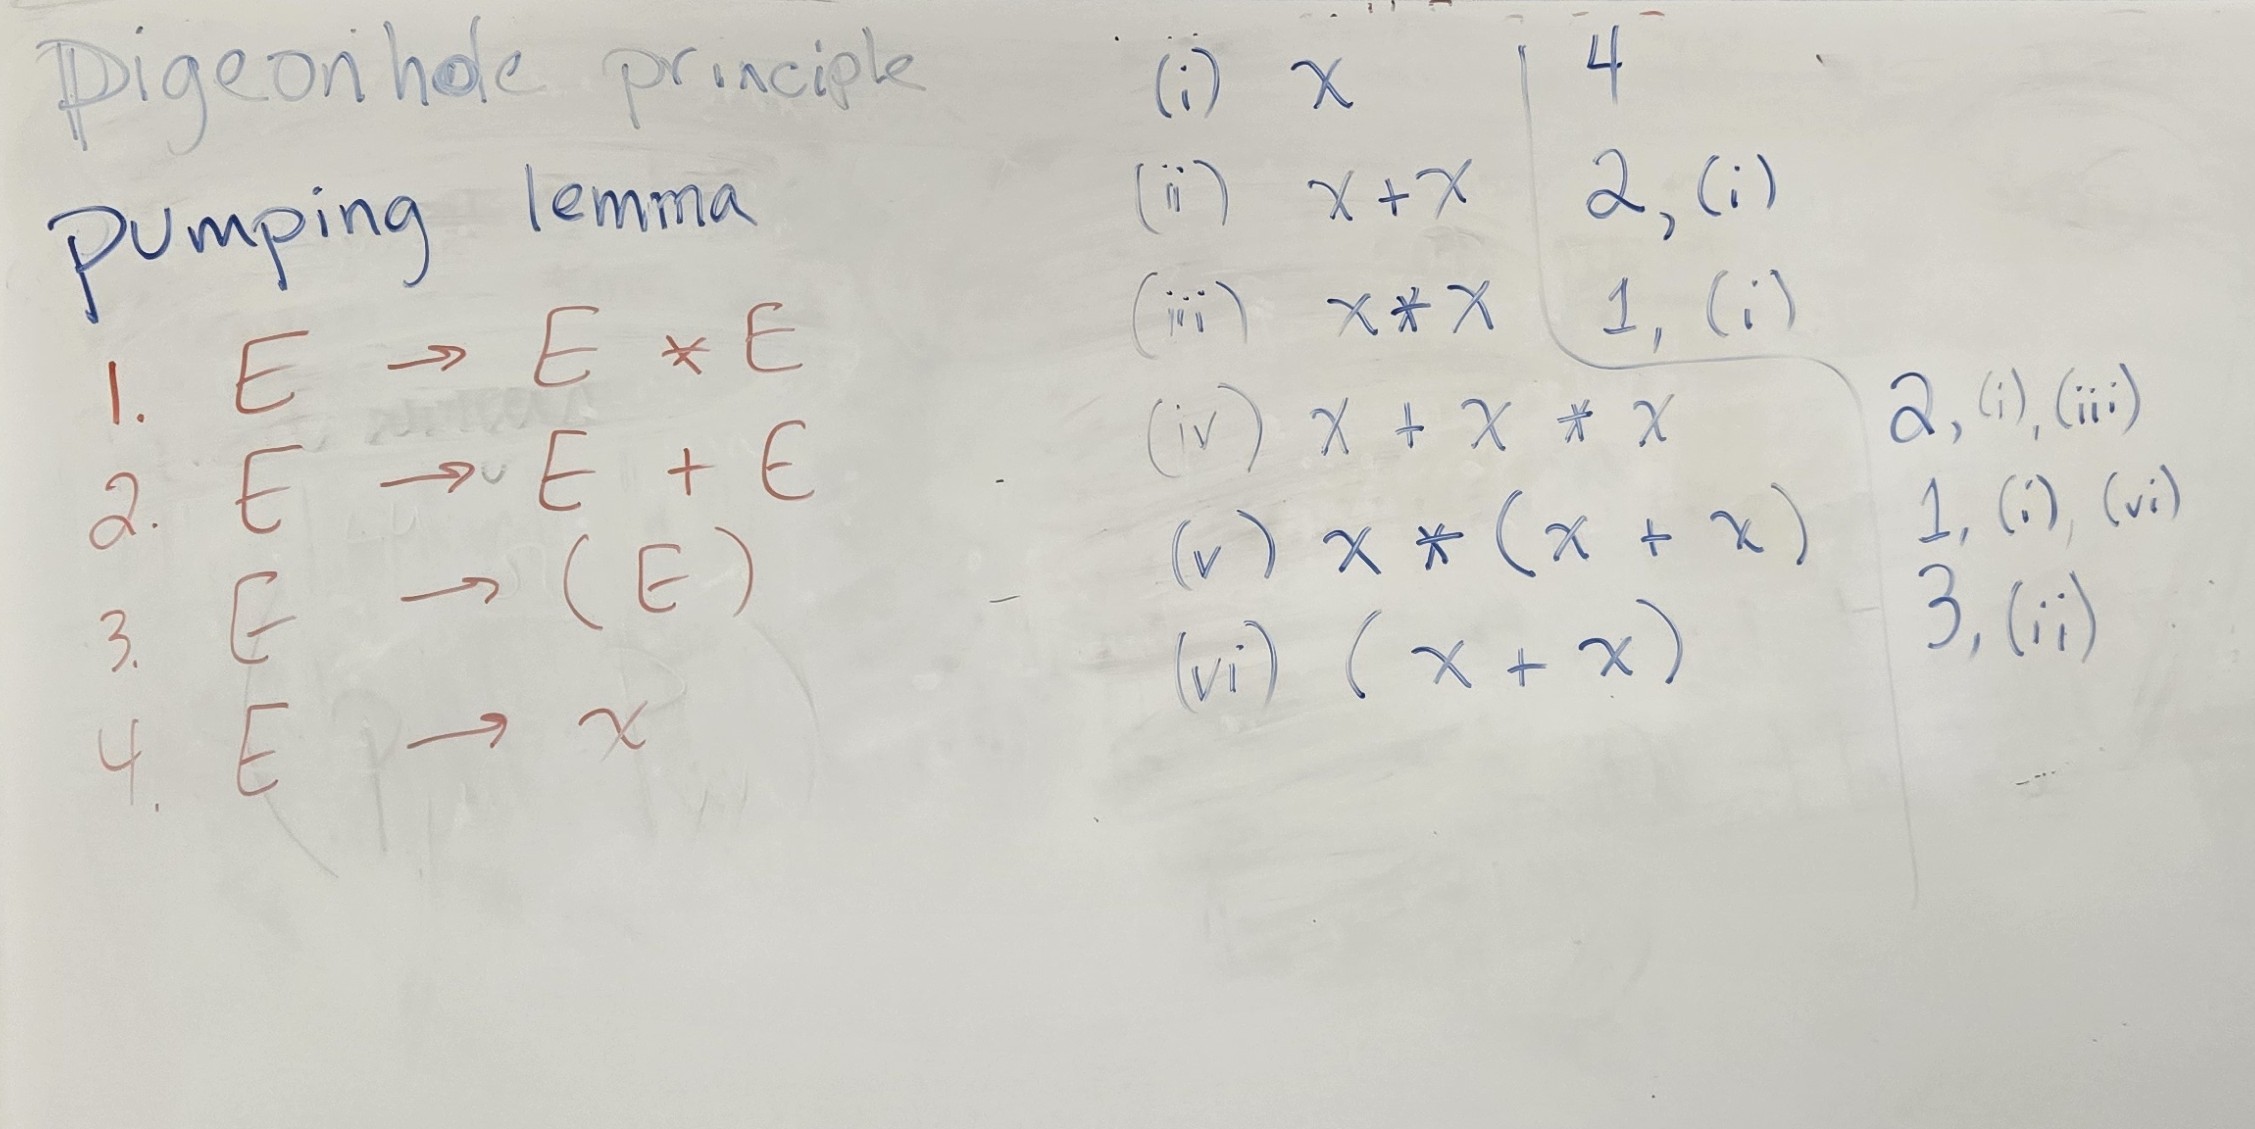 Pigeonhole principle
pumping lemma
1. E → E * E
2. E → E + E
3. E → (E)
4. E → x
(i) x 4
(ii) x+x 2, (i)
(iii) x*x 1, (i)
(iv) x + x * x 2, (i), (iii)
(v) x * (x + x) 1, (i), (vi)
(vi) (x + x) 3, (ii)